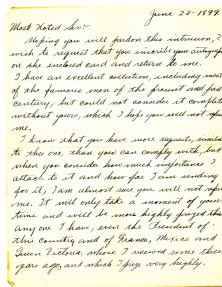 June 28-1899.
Most Noted Sir-
Hoping you will pardon this intrusion, I
wish to request that you inscribe your autograph
on the enclosed card and return to me.
I have an excellent collection, including most
of the famous men of the present and past
century, but could not consider it complete
without yours, which I hope you will not refuse
me.
I know that you have more requests, similar
to this one, than you can comply with, but
when you consider how much importance I
attach to it and how far I am sending
for it, I am almost sure you will not refuse
me. It will only take a moment of your
time and will be more highly prized than
any one I have, even the President of
this country and of France, Mexico and
Queen Victoria, whose I received some three
years ago, and which I prize very highly.